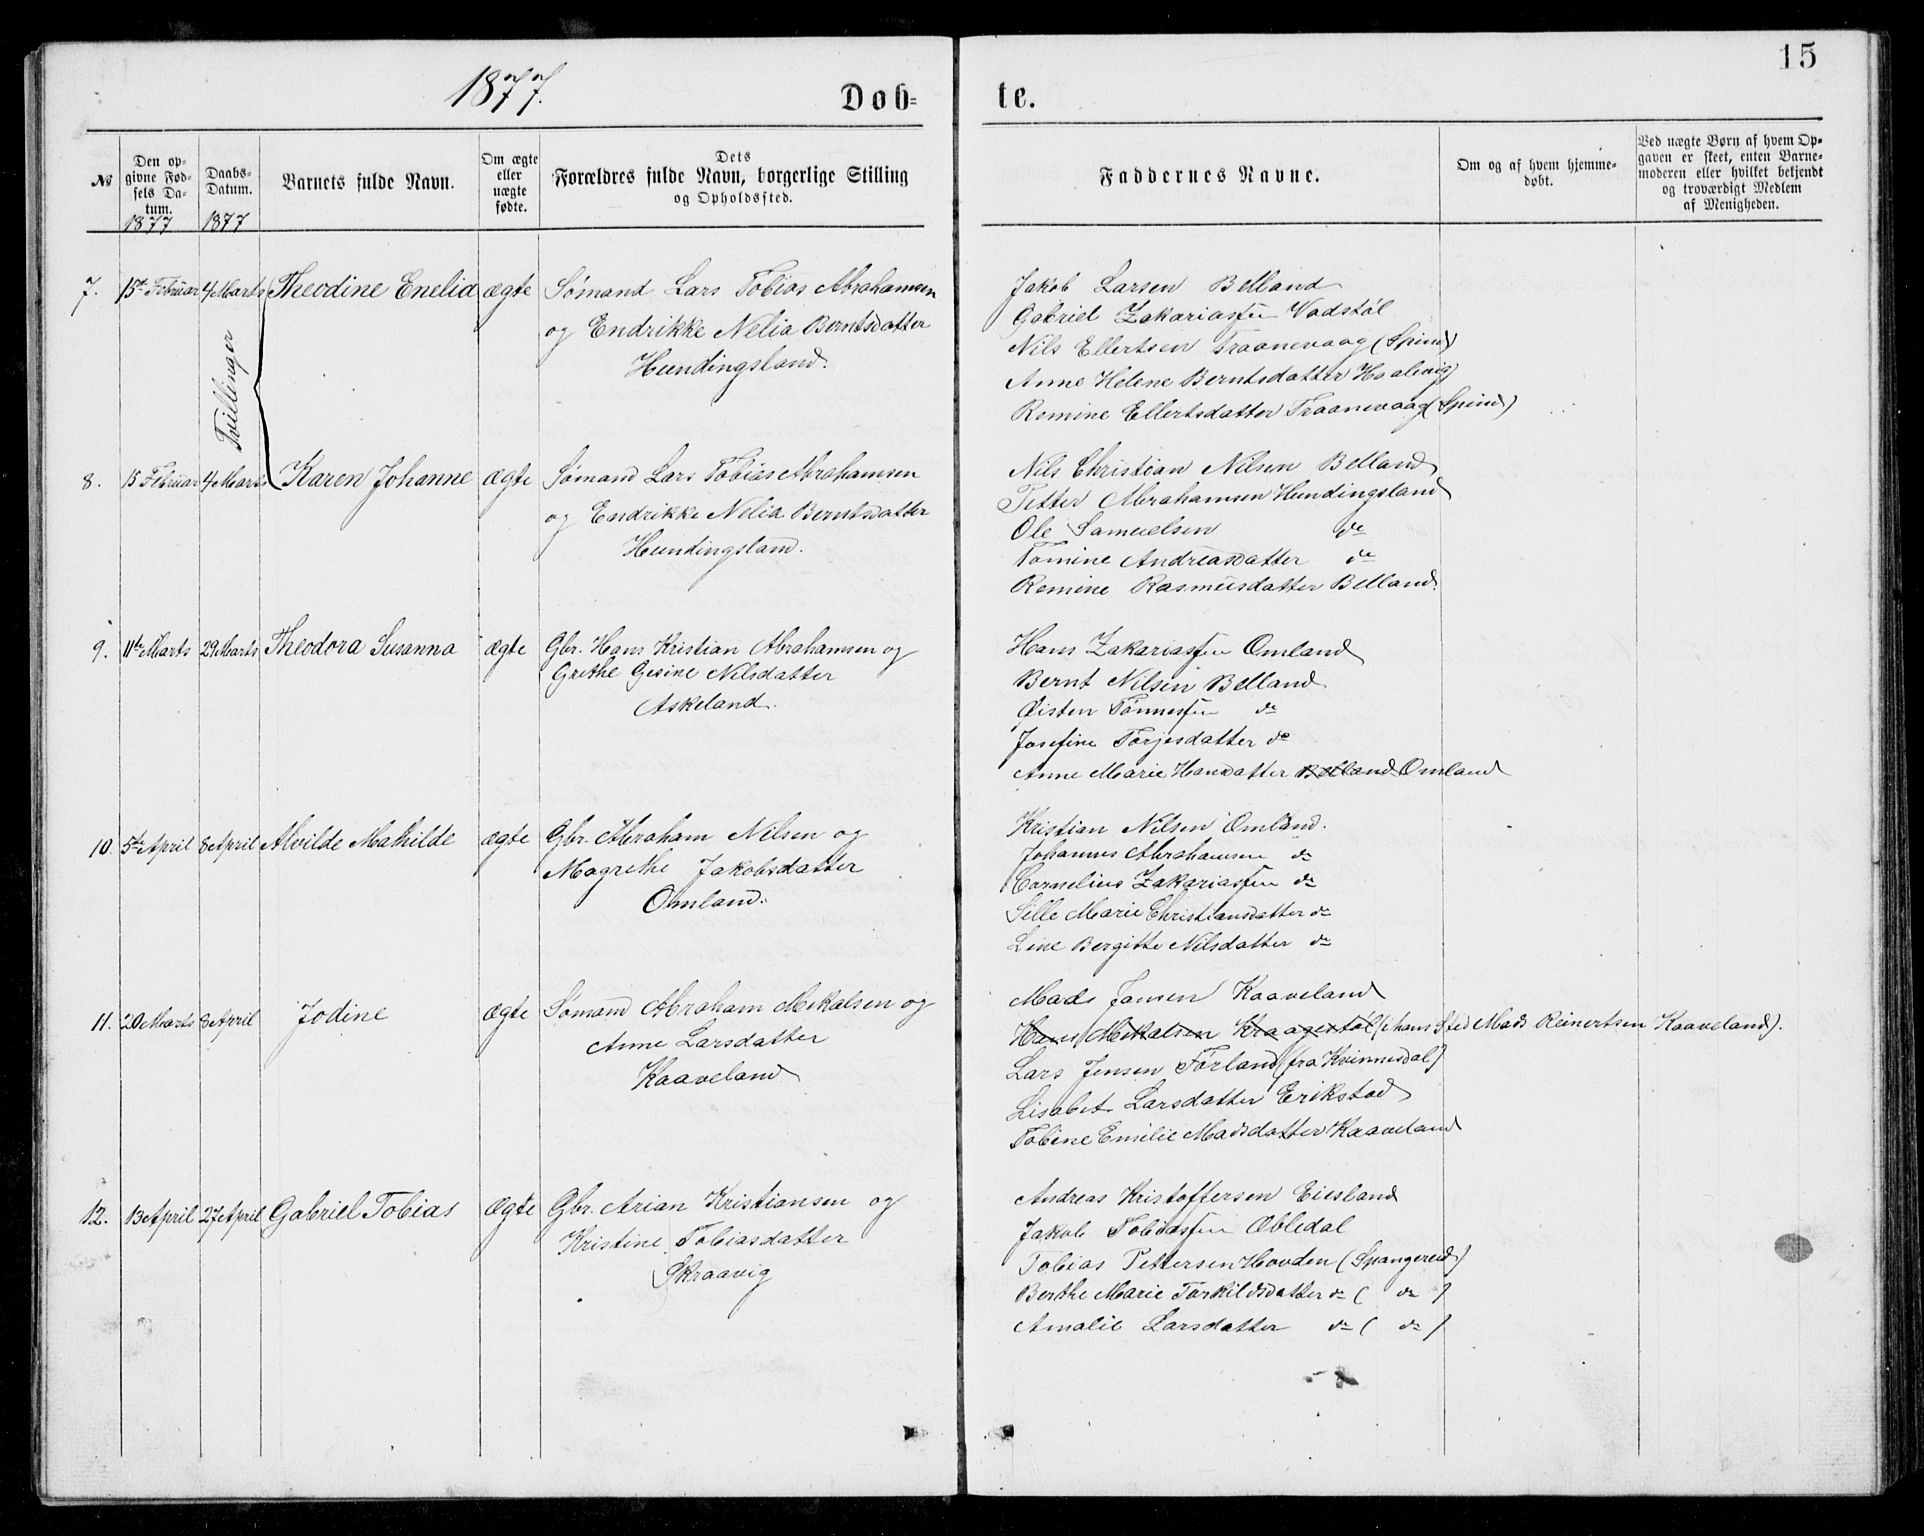 15
1877.
Døb-
te.
№
Den op-
givne Fød-
sels Da-
tum.
1877
Daabs-
Datum.
1877
Barnets fulde Navn.
Om ægte
eller
uægte
fødte.
Dets
Forældres fulde Navn, borgerlige Stilling
og Opholdssted.
Faddernes Navne.
Om og af hvem hjemme-
døbt.
Ved uægte Børn af hvem Op-
gaven er skeet, enten Barne-
moderen eller hvilket bekjendt
og troværdigt Medlem
af Menigheden.
7. 15de Februar 4 Marts Theodine Enelia ægte Sømand Lars Tobias Abrahamsen
og Endrikke Nelia Berntsdatter
Hundingsland.
Tvillinger
Jakob Larsen Belland
Gabriel Zakariassen Vadstøl
Nils Ellertsen Traanevaag (Spind)
Anne Helene Berntsdatter Haalevig
Romine Ellertsdatter Traanevaag (Spind)
8. 15 Februar 4 Marts Karen Johanne ægte Sømand Lars Tobias Abrahamsen
og Endrikke Nelia Berntsdatter
Hundingsland.
Nils Christian Nilsen Belland
Petter Abrahamsen Hundingsland
Ole Samuelsen do
Tomine Andreasdatter do
Romine Rasmusdatter Belland.
9. 11te Marts 29 Marts Theodora Susanna ægte Gbr. Hans Kristian Abrahamsen og
Grethe Gesine Nilsdatter
Askeland.
Hans Zakariassen Omland
Bernt Nilsen Belland
Øisten Tønnessen do
Josefine Torjesdatter do
Anne Marie Hansdatter Belland Omland
10. 5te April 8 April Alvilde Mathilde ægte Gbr. Abraham Nilsen og
Magrethe Jakobsdatter
Omland.
Kristian Nilsen Omland.
Johannes Abrahamsen do
Cornelius Zakariassen do
Sille Marie Christiansdatter do
Line Bergitte Nilsdatter do
11. 20 Marts 8 April Jodine ægte Sømand Abraham Mekalsen og
Anne Larsdatter
Kaaveland
Mads Jansen Kaaveland
Hans Mekalsen Kraagestøl (i hans Sted Mads Reinertsen Kaaveland).
Lars Jensen Førland (fra Kvinnesdal)
Lisabet Larsdatter Erikstad
Tobine Emilie Madsdatter Kaaveland
12. 13 April 27 April Gabriel Tobias Ægte Gbr. Arian Kristiansen og
Kristine Tobiasdatter
Skraavig
Andreas Kristoffersen Eiesland
Jakob Tobiassen Øbledal
Tobias Pettersen Hovden (Spangereid)
Berthe Marie Tarkildsdatter do ( do )
Amalie Larsdatter do ( do )